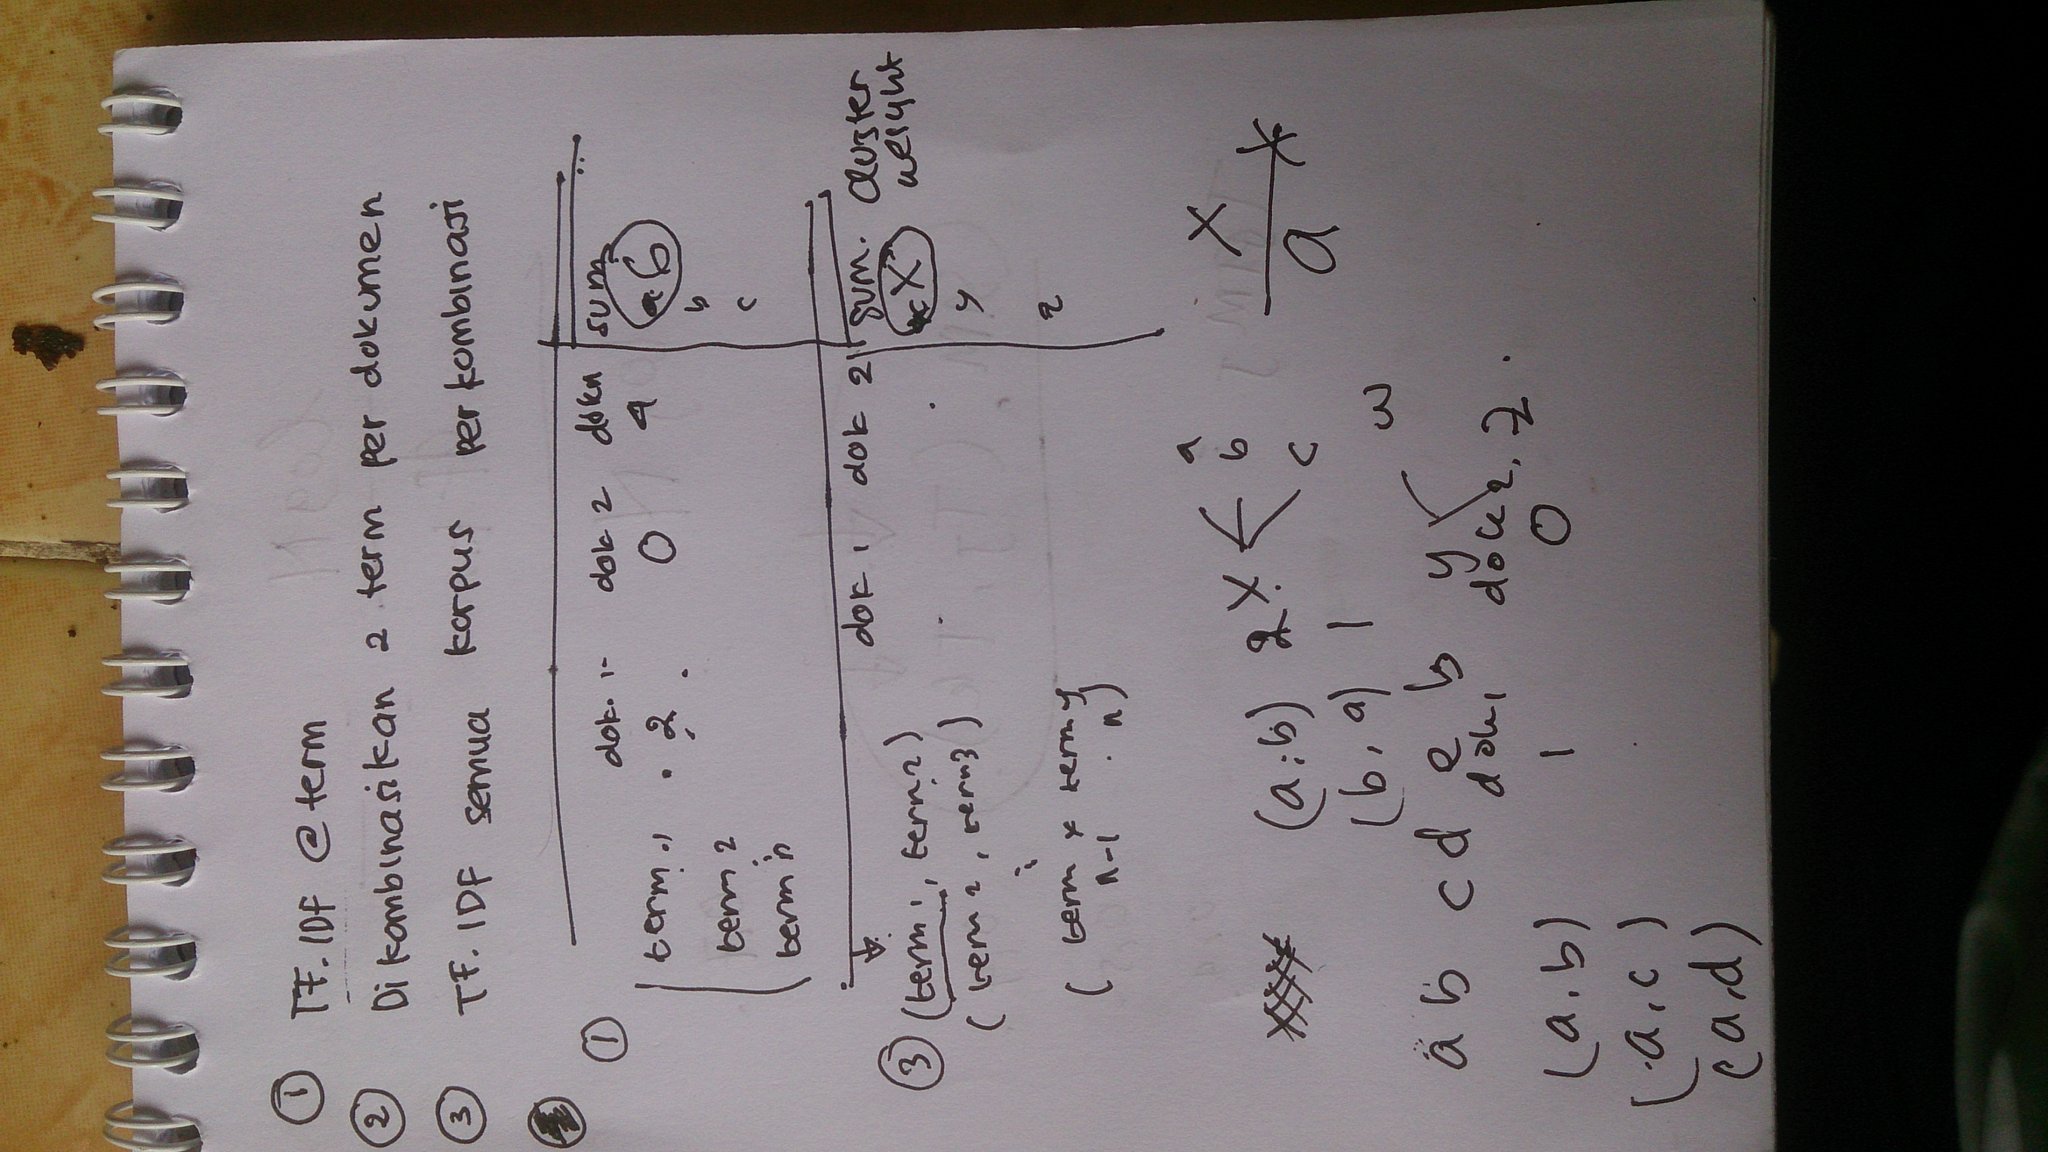 1 TF.IDF @ term
2 Dikombinasikan 2 term per dokumen
3 TF.IDF semua korpus perkombinasi
1 dok. 1 dok 2 dok n sum
term 1 2 0 4 a 6
b
term 2
c
term n
dok 1 dok 2 sum. cluster weight
3 (term 1, term 2) x
(term 2, term 3) y
(term x term y z
n-1 n)
a
(a, b) 2 x b x
c a x
(b, a) 1
w
a b c d e b y
dok 1 dok 2, z.
(a.b) 1 0
(a, c)
(a,d)